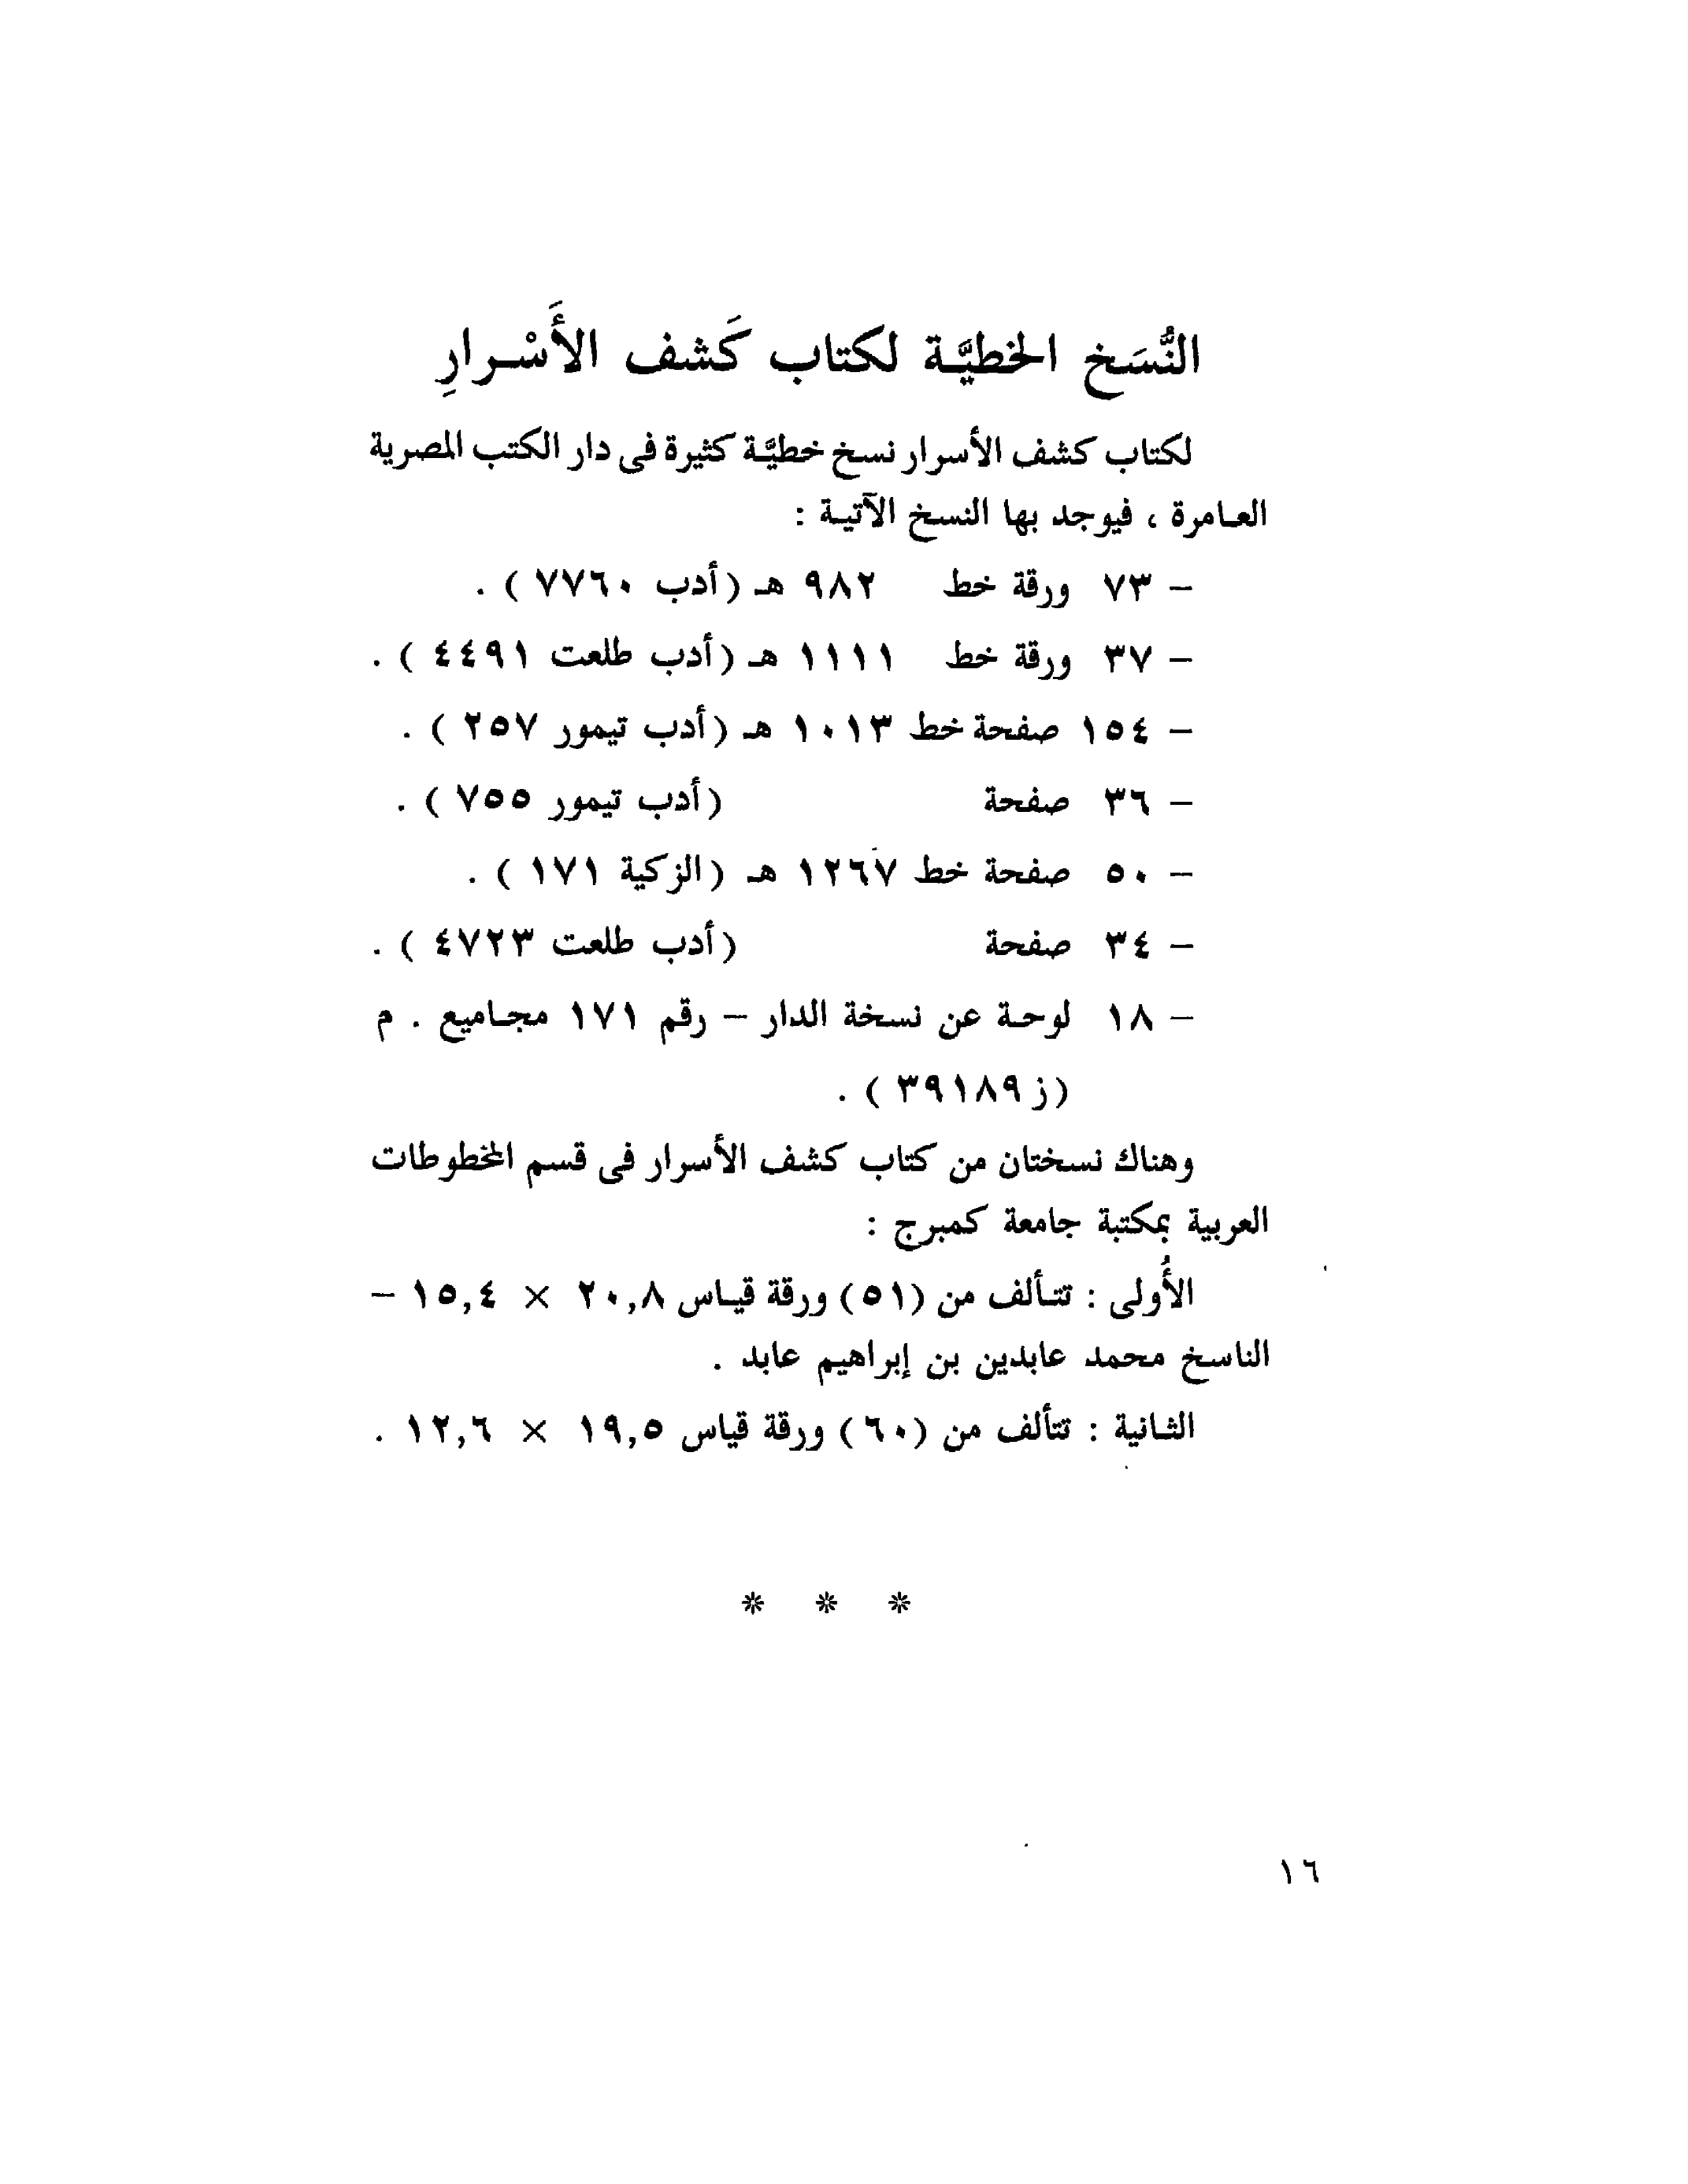 النُّسَخ الخطيَّة لكتاب كَشف الأَسْرارِ
لكتاب كشف الأسرار نسخ خطيَّة كثيرة فى دار الكتب المصرية
العامرة ، فيوجد بها النسخ الآتية :
– ٧٣ ورقة خط ٩٨٢ هـ (أدب ٧٧٦٠ ) .
– ٣٧ ورقة خط ١١١١ هـ (أدب طلعت ٤٤٩١ ) .
– ١٥٤ صفحة خط ١٠١٣ هـ (أدب تيمور ٢٥٧ ) .
– ٣٦ صفحة (أدب تيمور ٧٥٥ ) .
– ٥٠ صفحة خط ١٢٦٧ هـ (الزكية ١٧١ ) .
– ٣٤ صفحة (أدب طلعت ٤٧٢٣ ) .
– ١٨ لوحة عن نسخة الدار – رقم ١٧١ مجاميع . م
(ز ٣٩١٨٩ ) .
وهناك نسختان من كتاب كشف الأسرار فى قسم المخطوطات
العربية بمكتبة جامعة كمبرج :
الأُولى : تتألف من (٥١) ورقة قياس ٢٠,٨ × ١٥,٤ –
الناسخ محمد عابدين بن إبراهيم عابد .
الثانية : تتألف من (٦٠) ورقة قياس ١٩,٥ × ١٢,٦ .
* * *
١٦